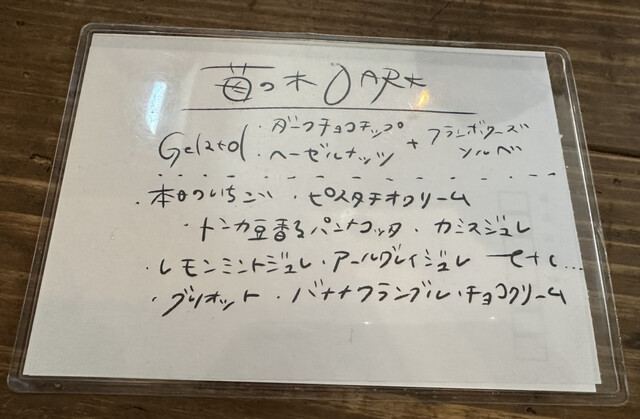 苺の木 DARK
Gelato ・ダークチョコチップ + フランボワーズ
・ヘーゼルナッツ ソルベ
・本日のいちご ・ピスタチオクリーム
・トンカ豆香るパンナコッタ ・カシスジュレ
・レモンミントジュレ ・アールグレイジュレ etc...
・グリオット ・バナナクランブル ・チョコクリーム